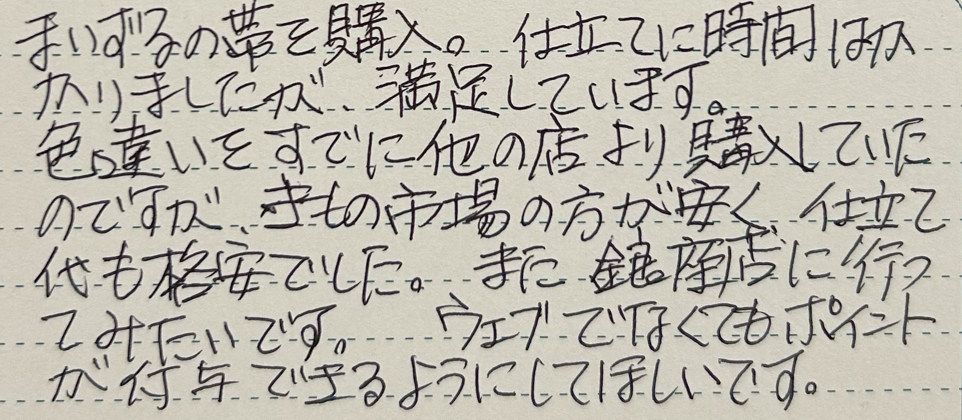 まいずるの帯を購入。仕立てに時間はか
かりましたが、満足しています。
色違いをすでに他の店より購入していた
のですが、きもの市場の方が安く、仕立て
代も格安でした。また銀座店に行っ
てみたいです。ウェブでなくてもポイント
が付与できるようにしてほしいです。